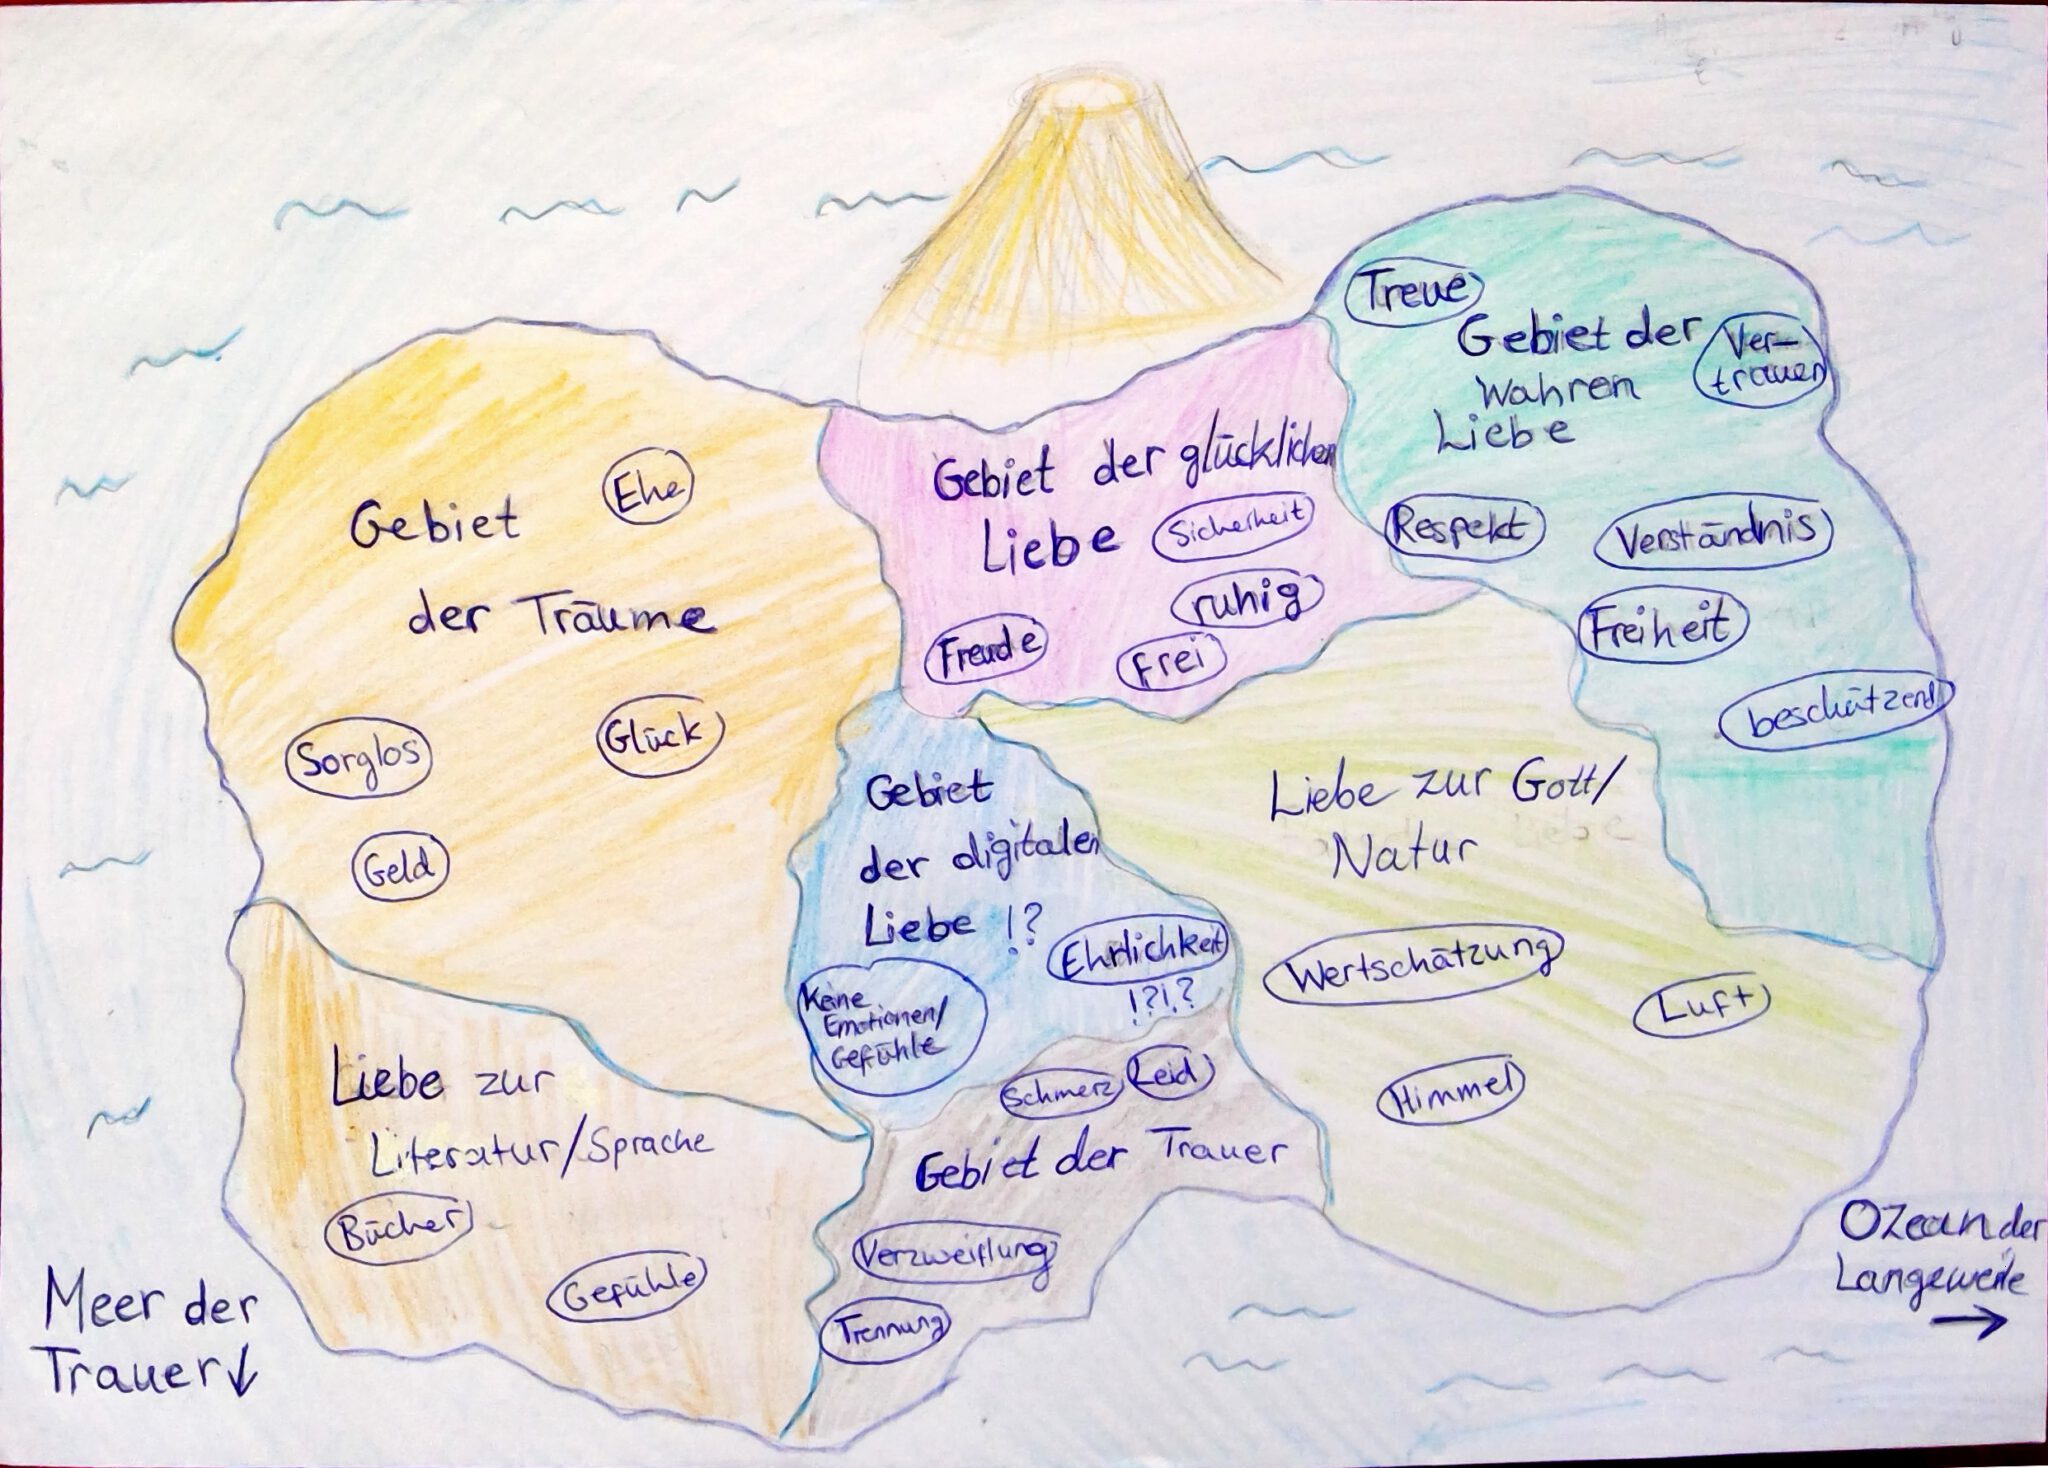 Treue
Gebiet der
wahren
Liebe
Ver-
trauen
Respekt
Verständnis
Freiheit
beschützend
Gebiet der glücklichen
Liebe
Sicherheit
ruhig
Freude
Frei
Gebiet
der Träume
Ehe
Sorglos
Glück
Geld
Gebiet
der digitalen
Liebe !?
Ehrlichkeit
!?!?
Keine
Emotionen/
Gefühle
Liebe zur Gott/
Natur
Wertschätzung
Luft
Himmel
Liebe zur
Literatur/Sprache
Bücher
Gefühle
Schmerz
Leid
Gebiet der Trauer
Verzweiflung
Trennung
Meer der
Trauer ↓
Ozean der
Langeweile
→